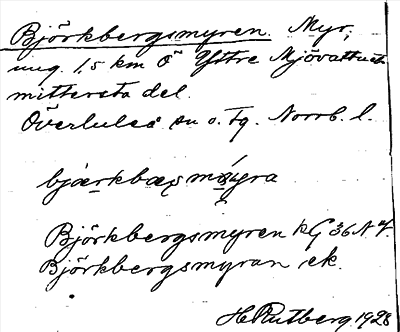 Björkbergsmyren. Myr,
ung. 1,5 km Ö Yttre Mjövattnets
mittersta del.
Överluleå sn o. tg. Norrb. l.
bjærkbæʂmɷyra
Björkbergsmyren kG 36 N 4
Björkbergsmyran ek.
H Rutberg 1928